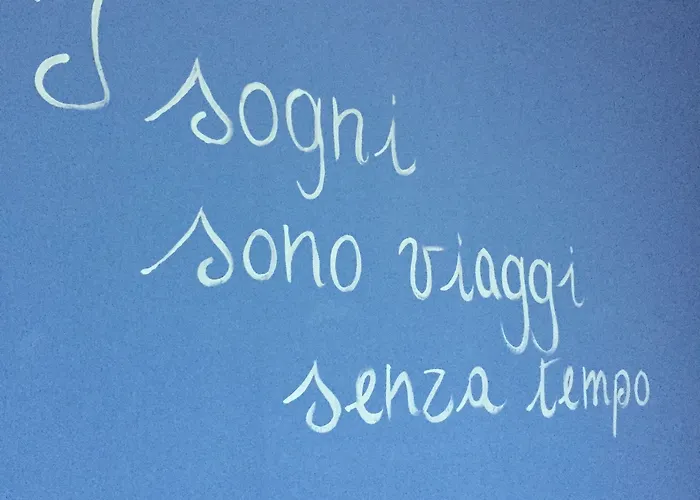 I sogni
sono viaggi
senza tempo